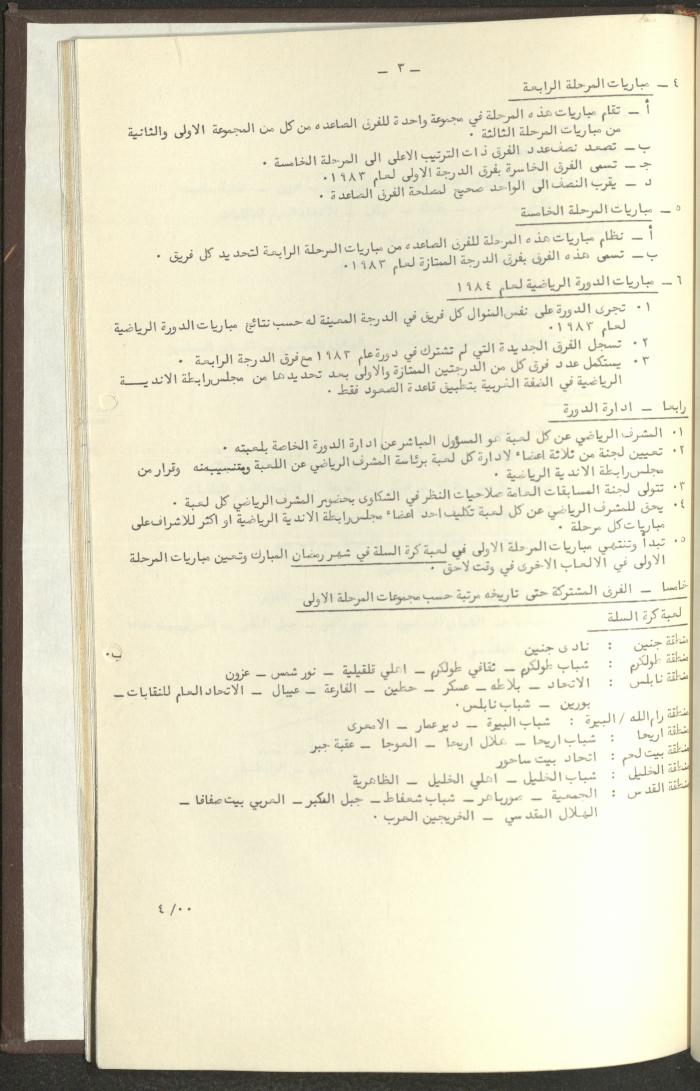 ـ ٣ ـ
٤ ـ مباريات المرحلة الرابعة
أ ـ تقام مباريات هذه المرحلة في مجموعة واحدة للفرق الصاعده من كل من المجموعة الاولى والثانية
من مباريات المرحلة الثالثة ٠
ب ـ تصعد نصف عدد الفرق ذات الترتيب الاعلى الى المرحلة الخامسة ٠
جـ ـ تسمى الفرق الخاسرة بفرق الدرجة الاولى لعام ١٩٨٣٠
د ـ يقرب النصف الى الواحد صحيح لمصلحة الفرق الصاعدة ٠
٥ ـ مباريات المرحلة الخامسة
أ ـ نظام مباريات هذه المرحلة للفرق الصاعده من مباريات المرحلة الرابعة لتحديد كل فريق ٠
ب ـ تسمى هذه الفرق بفرق الدرجة الممتازة لعام ١٩٨٣٠
٦ ـ مباريات الدورة الرياضية لعام ١٩٨٤
١٠ تجرى الدورة على نفس المنوال كل فريق في الدرجة المعينة له حسب نتائج مباريات الدورة الرياضية
لعام ١٩٨٣٠
٢٠ تسجل الفرق الجديدة التي لم تشترك في دورة عام ١٩٨٣ مع فرق الدرجة الرابعة ٠
٣٠ يستكمل عدد فرق كل من الدرجتين الممتازة والاولى بعد تحديدها من مجلس رابطة الانديـــة
الرياضية في الضفة الغربية بتطبيق قاعدة الصعود فقط ٠
رابعا ـ ادارة الدورة
١٠ المشرف الرياضي عن كل لعبة هو المسؤول المباشر عن ادارة الدورة الخاصة بلعبته ٠
٢٠ تعيين لجنة من ثلاثة اعضاء لادارة كل لعبة برئاسة المشرف الرياضي عن اللعبة وبتنسيب منه وقرار من
مجلس رابطة الاندية الرياضية ٠
٣٠ تتولى لجنة المسابقات العامة صلاحيات النظر في الشكاوى بحضور المشرف الرياضي كل لعبة ٠
٤٠ يحق للمشرف الرياضي عن كل لعبة تكليف احد اعضاء مجلس رابطة الاندية الرياضية او اكثر للاشراف على
مباريات كل مرحلة ٠
٥٠ تبدأ وتنتهي مباريات المرحلة الاولى في لعبة كرة السلة في شهر رمضان المبارك وتعين مباريات المرحلة
الاولى في الالعاب الاخرى في وقت لاحق ٠
خامسا ـ الفرق المشتركة حتى تاريخه مرتبة حسب مجموعات المرحلة الاولى
لعبة كرة السلة
منطقة جنين : نادى جنين
منطقة طولكرم : شباب طولكرم ـ ثقافي طولكرم ـ اهلي قلقيلية ـ نور شمس ـ عزون
منطقة نابلس : الاتحاد ـ بلاطه ـ عسكر ـ حطين ـ الفارعة ـ عيبال ـ الاتحاد العام للنقابات ـ
بورين ـ شباب نابلس٠
منطقة رام الله / البيرة : شباب البيرة ـ دير عمار ـ الامعرى
منطقة اريحا : شباب اريحا ـ هلال اريحا ـ العوجا ـ عقبة جبر
منطقة بيت لحم : اتحاد بيت ساحور
منطقة الخليل : شباب الخليل ـ اهلي الخليل ـ الظاهرية
منطقة القدس : الجمعية ـ صورباهر ـ شباب شعفاط ـ جبل المكبر ـ العربي بيت صفافا ـ
الهلال المقدسي ـ الخريجين العرب ٠
٤ /٠٠